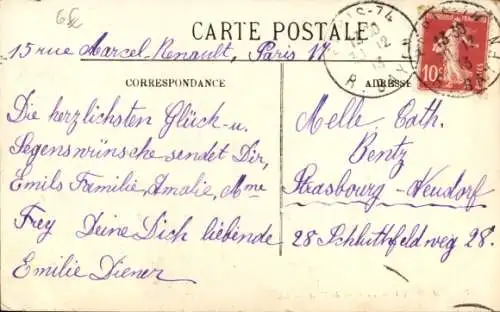 CARTE POSTALE
15 rue Marcel-Renault, Paris 17
CORRESPONDANCE
ADRESSE
Die herzlichsten Glück-u.
Segenswünsche sendet Dir,
Emils Familie, Amalie, Mme
Frey Deine Dich liebende
Emilie Diener
Melle Cath.
Bentz
Strasbourg-Neudorf
28 Schluthfeldweg 28.
10c